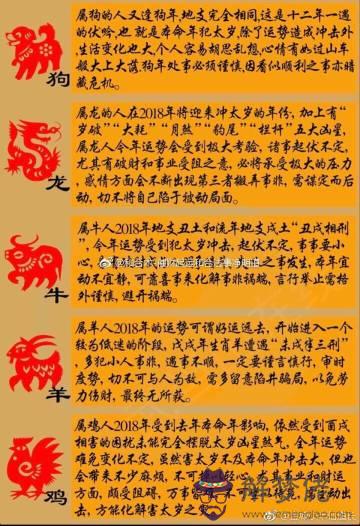 属狗的人又逢狗年,地支完全相同,这是十二年一遇
的伏吟,也就是本命年犯太岁除了运势造成冲击外
生活变化也大个人容易胡思乱想,心情有如过山车
般大上大落,狗年处事必须谨慎,因看似顺利之事亦暗
藏危机。
狗
属龙的人在2018年将迎来冲太岁的年份,加上有“
岁破”“大耗”“月煞”“豹尾”“栏杆”五大凶星,
属龙人今年运势受到极大考验,诸事起伏不定,
尤其有破财和事业受阻之意,必将承受极大的压力
,感情方面会不断出现第三者搬弄事非,需谋定而后
动,切不将自己陷于被动局面。
龙
属牛人2018年地支丑土和流年地支戌土“丑戌相刑
”,今年运势受到犯太岁冲击,起伏不定,事事要小
心,
之事发生,本年宜
动不宜静,可靠喜事来化解事非祸端,言行举止需格
外谨慎,避开祸端。
牛
属羊人2018年的运势可谓好运远去,开始进入一个
较为低迷的阶段,戊戌年生肖羊遭遇“未戌穿三刑”
,多犯小人事非,遇事不顺,一定要谨言慎行,审时
度势,切不可与人为敌,需多留意陷井骗局,以免劳
力伤财,最终无所获。
羊
属鸡人2018年受到去年本命年影响,依然受到酉戌
相害的困扰,未能完全摆脱太岁凶星煞气,全年运势
难免变化不定,虽然害太岁不及本命年冲击大,但也
会带来不少麻烦,不可
其事业与财运
方面,颇受阻碍,万事
动出
去,方能化解害太岁之
鸡
解梦佬